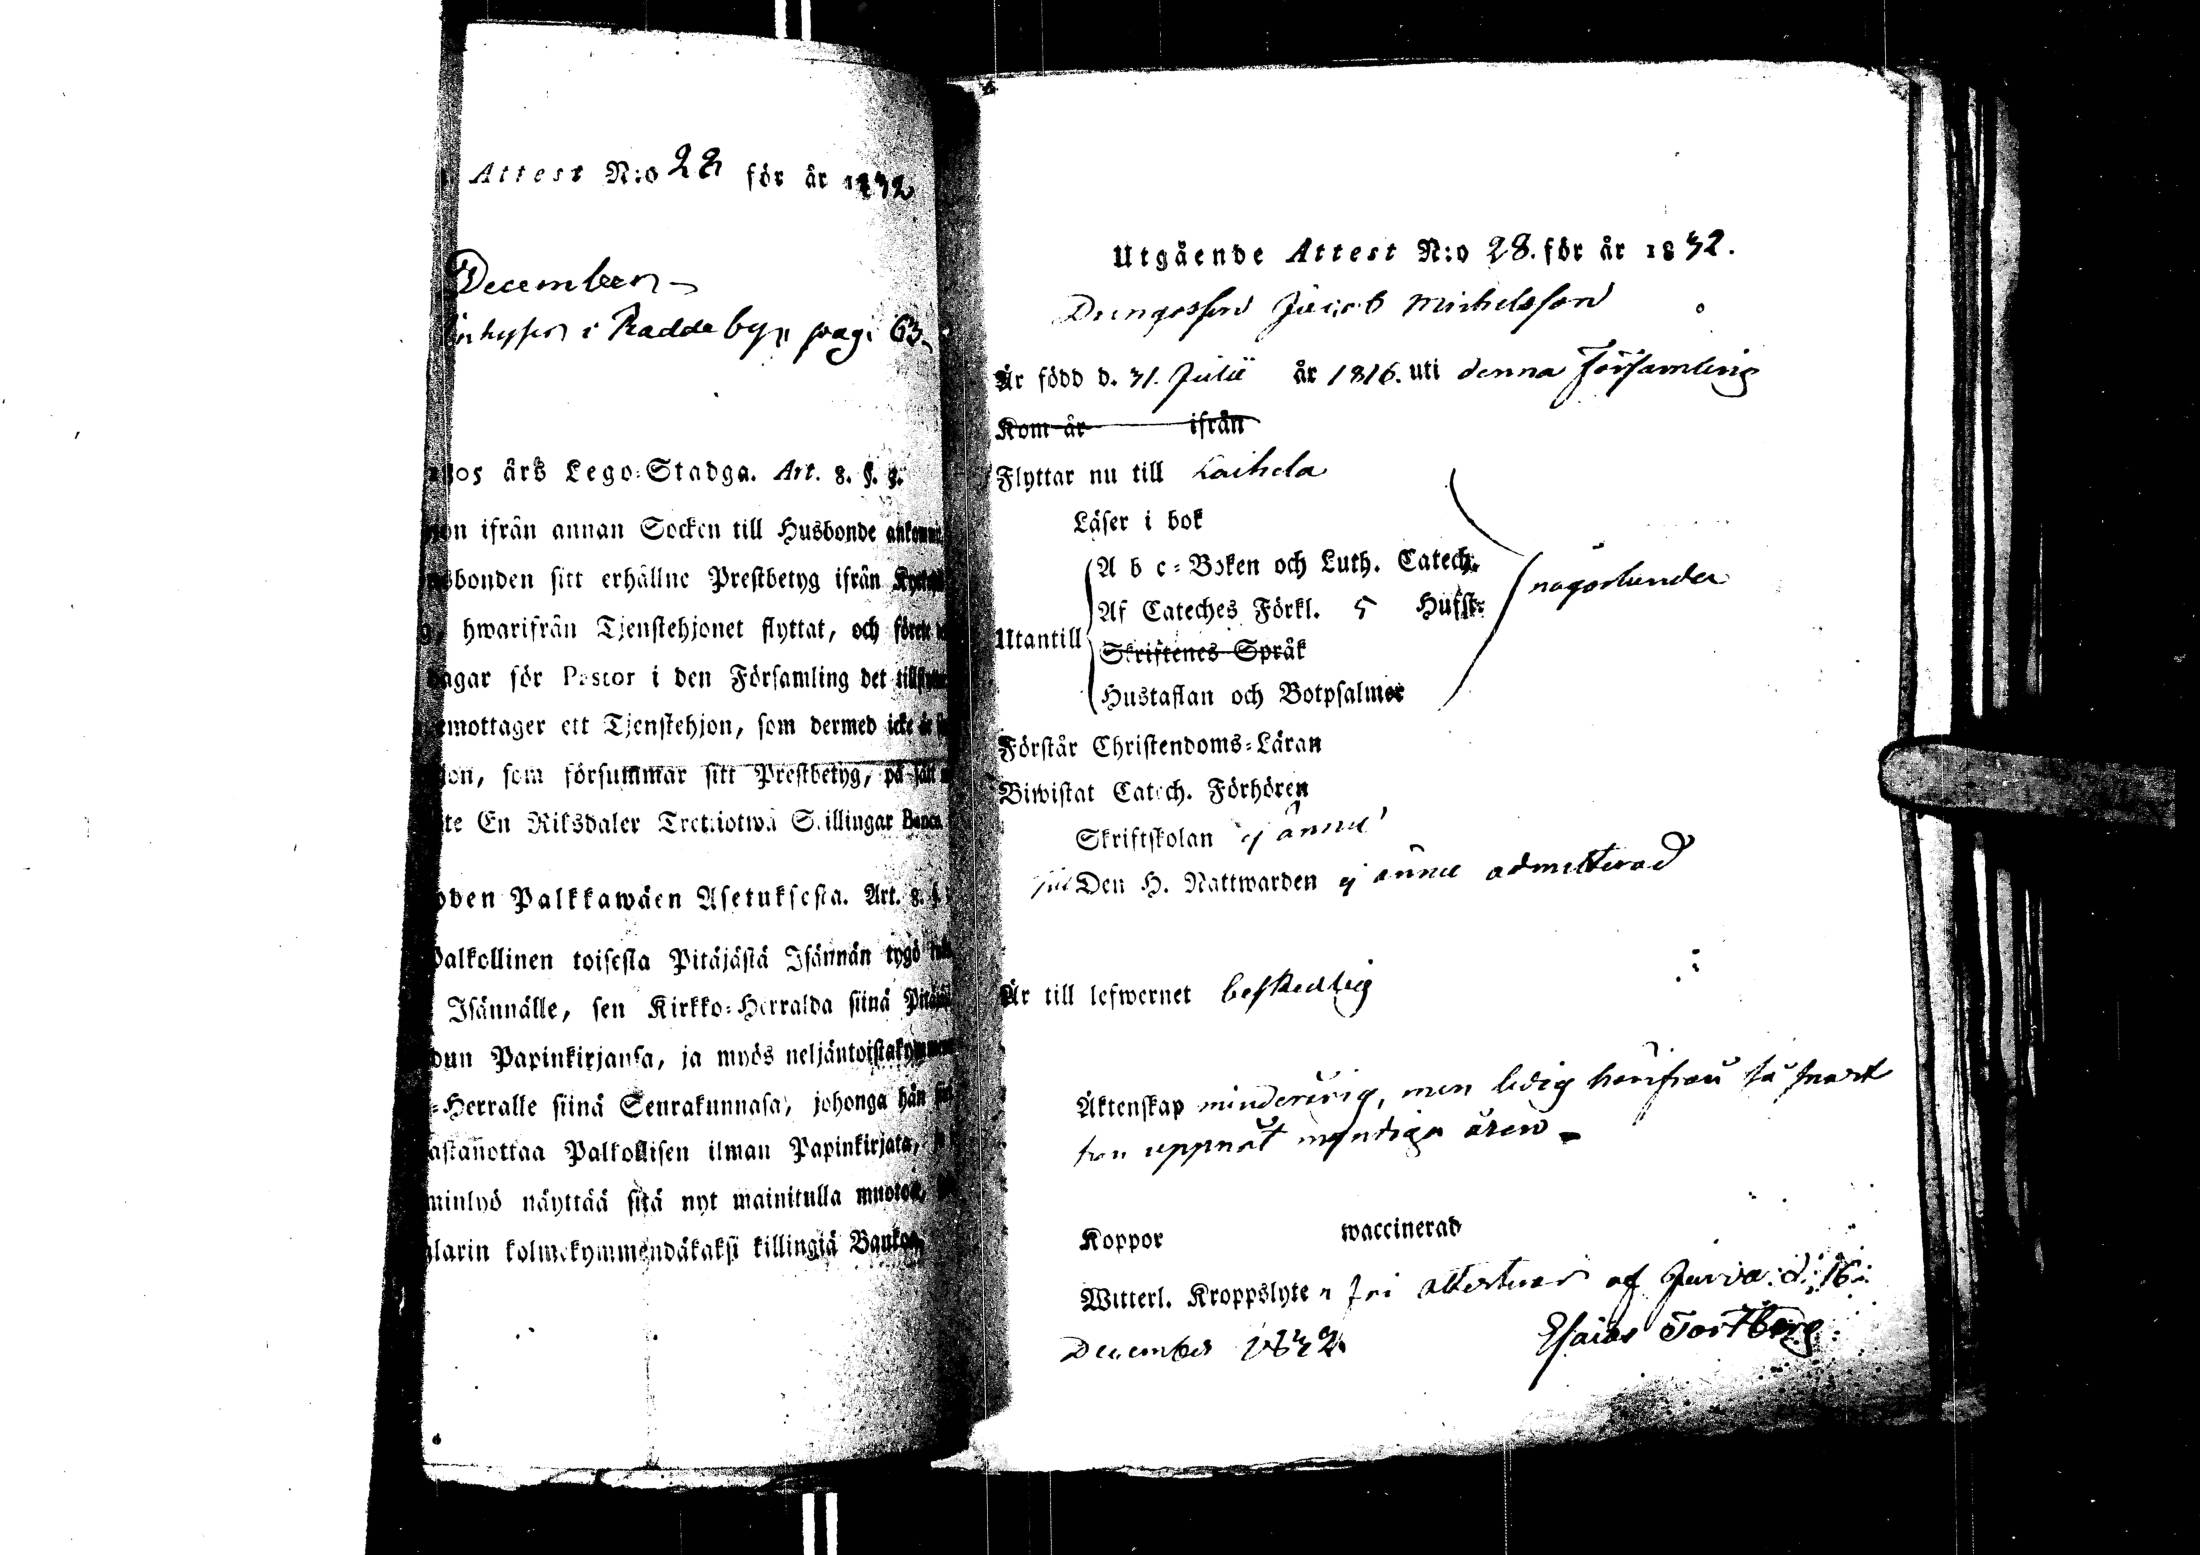 Attest N:o 28 för år 1832
December
Inhyses i Radda by, pag. 63
1805 års Lego-Stadga. Art. 8. §. 3.
ifrån annan Socken till Husbonde
sitt erhållne Prestbetyg ifrån
hwarifrån Tjenstehjonet flyttat, och
för Pastor i den Församling det
emottager ett Tjenstehjon, som dermed icke
som försummar sitt Prestbetyg, på
En Riksdaler Trettiotwå Skillingar Banco
Palkkawäen Asetuksesta. Art. 8.
Palkollinen toisesta Pitäjästä Isännän tygö
Isännälle, sen Kirkko-Herralda siinä
Papinkirjansa, ja myös
Herralle siinä Seurakunnasa, johonga hän
Palkollisen ilman Papinkirjata,
näyttää sitä nyt mainitulla
kolmekymmendäkaksi killingiä
Utgående Attest N:o 28. för år 1832.
Drengosson Jacob Michelsson
Är född d. 31. Julii år 1816. uti denna Församling
Kom år ifrån
Flyttar nu till Laihela
Läser i bok
A b c-Boken och Luth. Catech.
någorlunda
Af Cateches Förkl. 5 Hufst:
Utantill
Skriftenes Språk
Hustaflan och Botpsalmer
Förstår Christendoms-Läran
Biwistat Catech. Förhören
Skriftskolan ej ännu
till Den H. Nattwarden ej ännu admitterad
Är till lefwernet beskedlig
Äktenskap minderårig, men ledig härifrån så snart
han uppnåt myndiga åren
Koppor waccinerad
Witterl. Kroppslyte fri attesterar af Jurva d. 16
December 1832
Esaias Tortberg